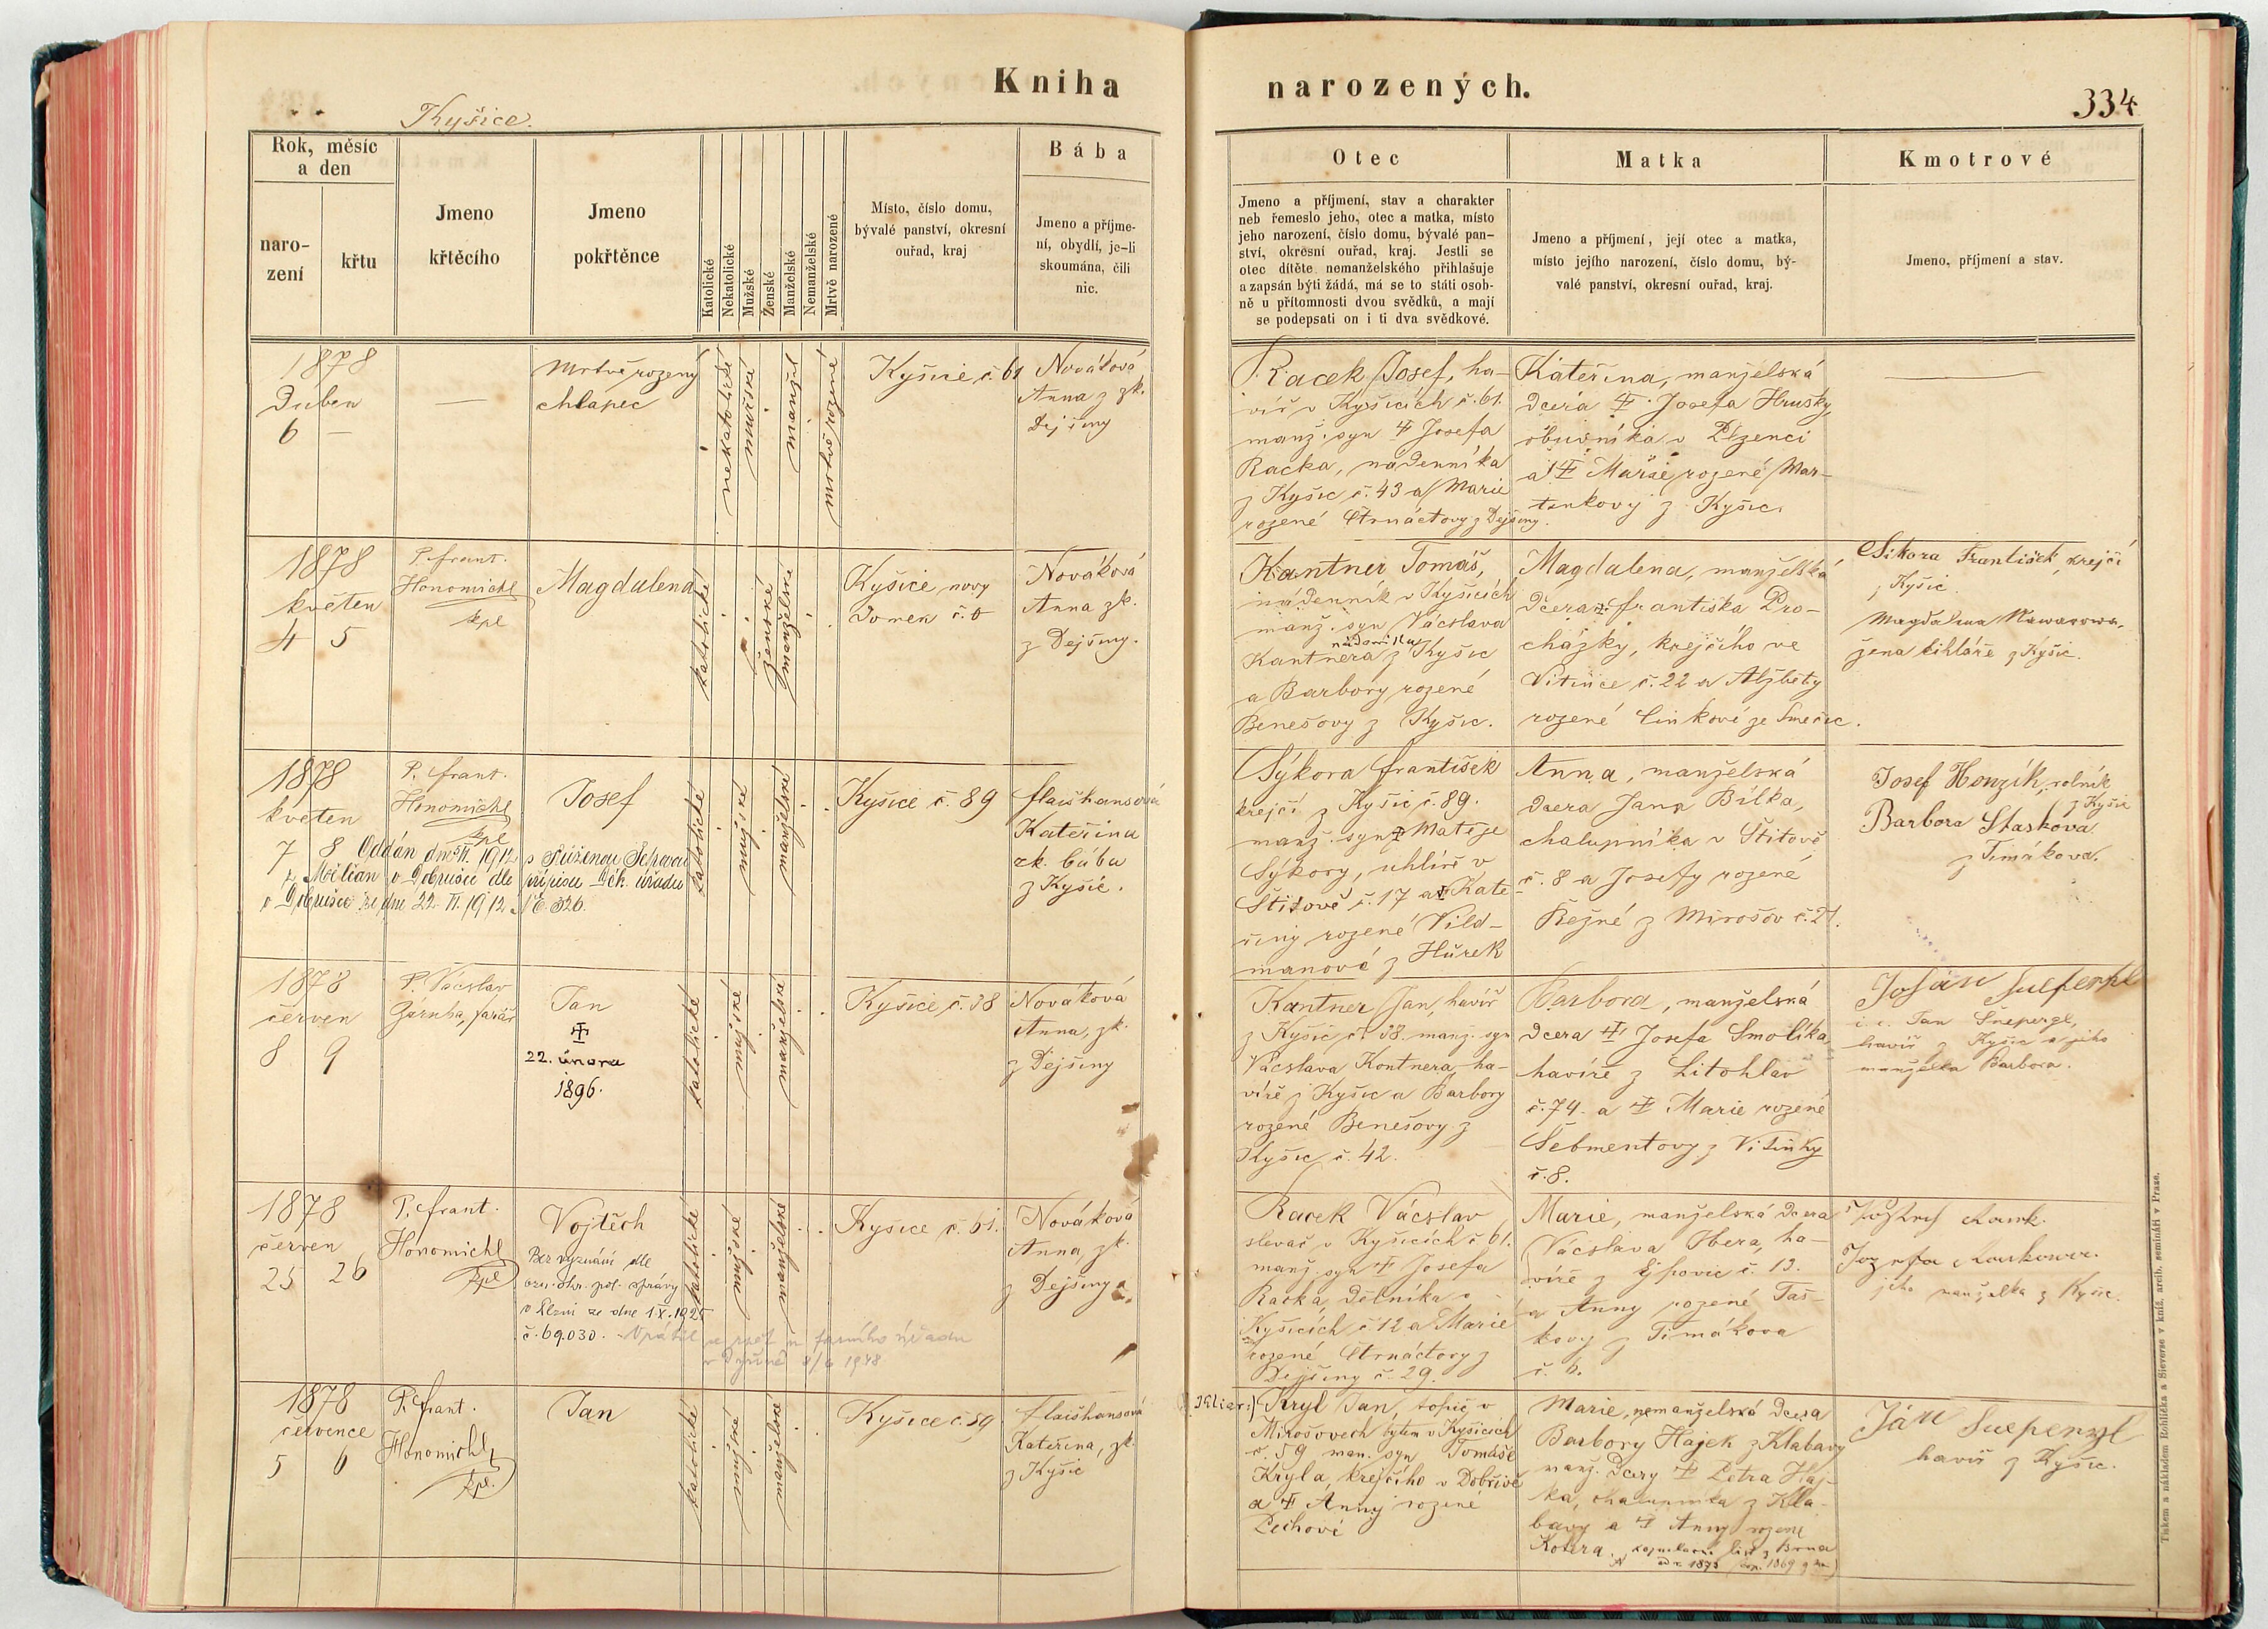 Kniha
narozených.
334
Kyšice.
Rok, měsíc
a den
naro-
zení
křtu
Jmeno
křtěcího
Jmeno
pokřtěnce
Katolické
Nekatolické
Mužské
Ženské
Manželské
Nemanželské
Mrtvě narozené
Místo, číslo domu,
bývalé panství, okresní
ouřad, kraj
Bába
Jmeno a příjme-
ní, obydlí, je-li
skoumána, čili
nic.
Otec
Jmeno a příjmení, stav a charakter
neb řemeslo jeho, otec a matka, místo
jeho narození, číslo domu, bývalé pan-
ství, okresní ouřad, kraj. Jestli se
otec dítěte nemanželského přihlašuje
a zapsán býti žádá, má se to státi osob-
ně u přítomnosti dvou svědků, a mají
se podepsati on i ti dva svědkové.
Matka
Jmeno a příjmení, její otec a matka,
místo jejího narození, číslo domu, bý-
valé panství, okresní ouřad, kraj.
Kmotrové
Jmeno, příjmení a stav.
1878
Duben
6 —
—
Mrtvě rozený
chlapec
nekatolické
mužské
manžel
mrtvě rozené
Kyšice č. 61
Nováková
Anna z zk.
Dejšiny
Racek Josef, ha-
víř v Kyšicích č. 61.
manž. syn Josefa
Racka, nádenníka
z Kyšic č. 43 a Marie
rozené Čtrnáctovy z Dejšiny.
Kateřina, manželská
dcera Josefa Hrušky,
obuvníka v Plzenci
a Marie rozené Mar-
tínkovy z Kyšic.
1878
květen
4 5
P. Frant.
Honomichl
kpl
Magdalena
katolické
ženské
manželské
Kyšice nový
domek č. 0
Nováková
Anna zk.
z Dejšiny.
Kantner Tomáš,
nádenník v Kyšicích
manž. syn Vácslava
Kantnera z Kyšic
a Barbory rozené
Benešovy z Kyšic.
Magdalena, manželská
dcera Františka Pro-
cházky, krejčího ve
Vitince č. 22 a Alžběty
rozené
Sikora František, krejčí
z Kyšic.
Magdalena
žena cihláře z Kyšic.
1878
květen
7 8
P. Frant.
Honomichl
kpl
Josef
Oddán dne 1912 s Růženou
v Dobrušce dle přípisu Děk. úřadu
v Dobrušce ze dne 22. VI. 1912 N E 326.
katolické
mužské
manželské
Kyšice č. 89
Flaišhansová
Kateřina
zk. bába
z Kyšic.
Sýkora František
krejčí z Kyšic č. 89.
manž. syn Matěje
Sýkory, uhlíře v
Štítově č. 17 a Kate-
řiny rozené Vild-
manové z Hůrek
Anna, manželská
dcera Jana Bílka,
chalupníka v Štítově
č. 8 a Josefy rozené
Řežné z Mirošov č. 21.
Josef Honzík, rolník
z Kyšic
Barbora Staskova
z Timákova.
1878
červen
8 9
P. Vácslav
Zárnba, farář
Jan
22. února
1896.
katolické
mužské
manželské
Kyšice č. 38
Nováková
Anna, zk.
z Dejšiny
Kantner Jan, havíř
z Kyšic č. 38. manž. syn
Vácslava Kantnera ha-
víře z Kyšic a Barbory
rozené Benešovy z
Kyšic č. 42.
Barbora, manželská
dcera Josefa Smolíka
havíře z Litohlav
č. 74. a Marie rozené
Šebmentovy z Vitinky
č. 8.
Jan Šnepergl,
havíř z Kyšic a jeho
manželka Barbora.
1878
červen
25 26
P. Frant.
Honomichl
kpl
Vojtěch
Bez vyznání dle
ozn. okr. pol. správy
v Plzni ze dne 1. X. 1925
č. 69.030.
katolické
mužské
manželské
Kyšice č. 61.
Nováková
Anna, zk.
z Dejšiny
Racek Vácslav
slevač v Kyšicích č. 61.
manž. syn Josefa
Racka, dělníka v
Kyšicích č. 12 a Marie
rozené Čtrnáctovy z
Dejšiny č. 29.
Marie, manželská dcera
Vácslava Ibera, ha-
víře z Ejpovic č. 13.
a Anny rozené Taš-
kovy z Timákova
č. 6.
jeho manželka z Kyšic.
1878
července
5 6
P. Frant.
Honomichl
kpl.
Jan
katolické
mužské
manželské
Kyšice č. 59
Flaišhansová
Kateřina, zk.
z Kyšic
Kryl Jan, topič v
Mirošovech bytem v Kyšicích
č. 59 man. syn Tomáše
Kryla, krejčího v Dobřívě
a Anny rozené
Pechové
Marie, nemanželská dcera
Barbory Hájek z Klabavy
manž. dcery Petra Háj-
ka, chalupníka z Kla-
bavy a Anny rozené
Kotera.
Ján Šnepergl
havíř z Kyšic.
Tiskem a nákladem Rohlíčka a Sieverse v kníž. arcib. semináři v Praze.